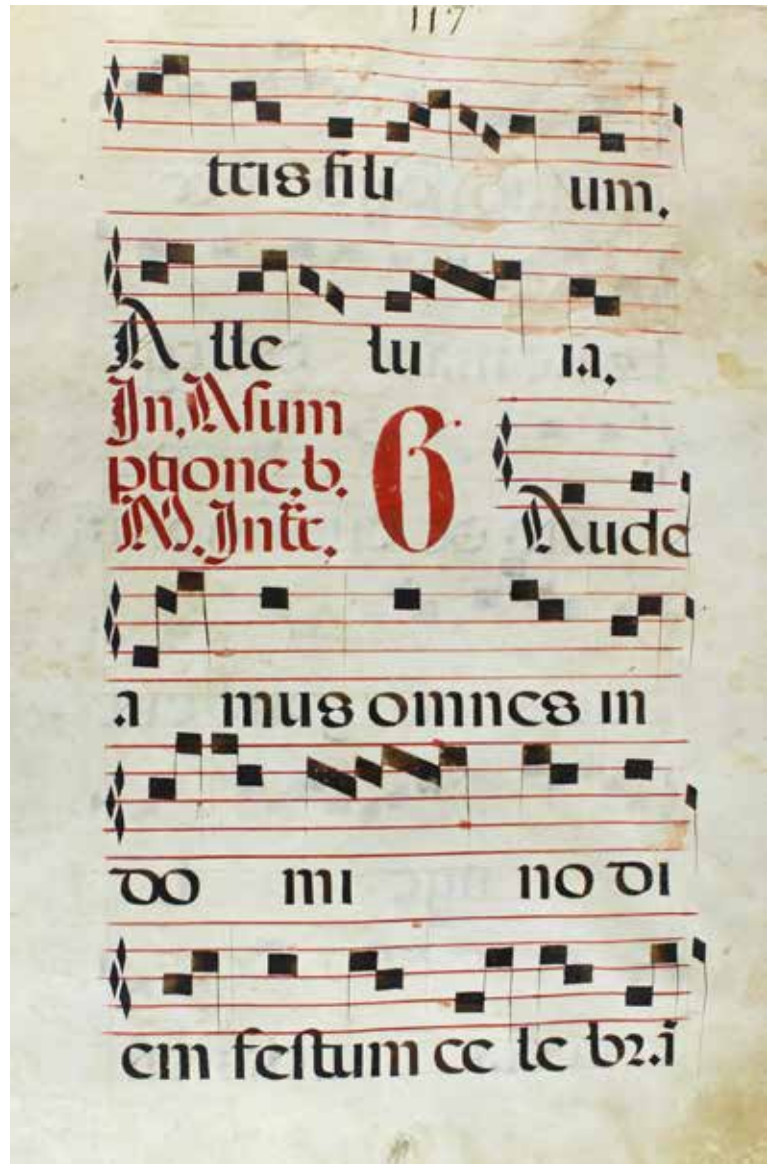 117
tris fili um.
A lle lu ia.
In. Asum
ptione. b.
M. Intr̄.
G Aude
a mus omnes in
do mi no di
em festum ce le bra